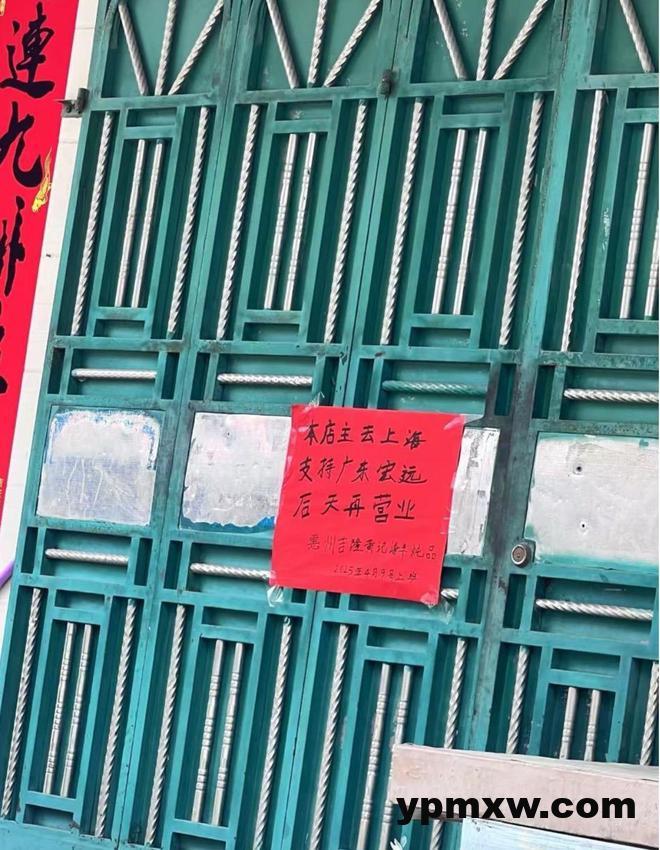 連
九
本店主去上海
支持广东宏远
后天再营业
惠州吉隆黄记炖品
2025年4月9号上午
ypmxw.com